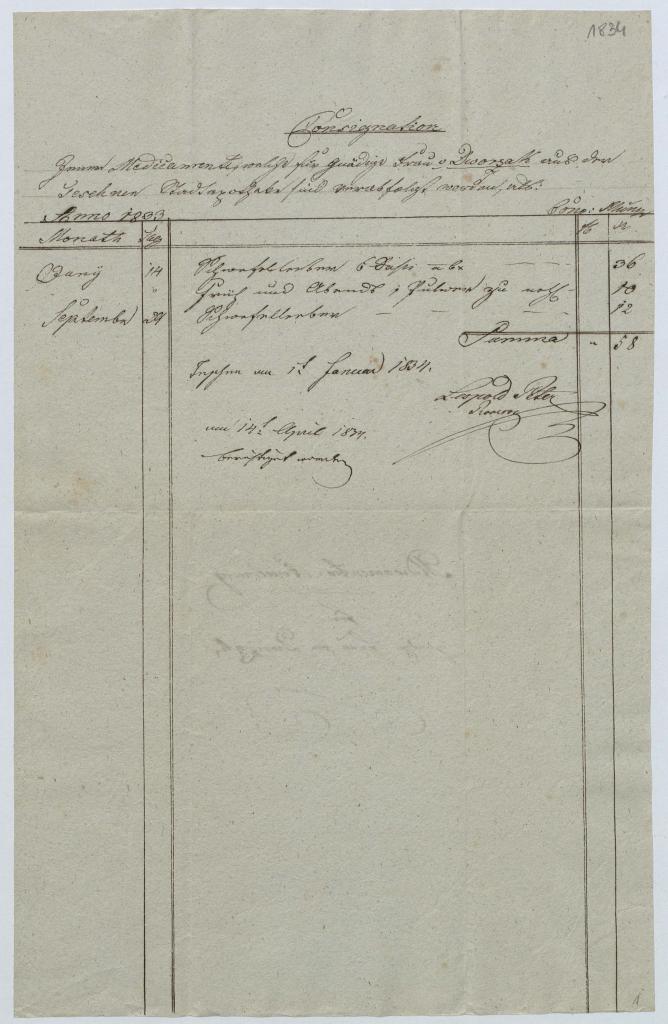 1834
Consignation
Jener Medicamente, welche für gnädige Frau v Dworzak aus der
Teschner Stadtapotheke sind verabfolgt worden, als:
Anno 1833 Conv: Münz
Monath Tag fl xr
14 Schwefelleber 6 36
" Früh und Abends 1 Pulver zu 10
September 29 Schwefelleber — — — 12
Summa " 58
Teschen am 1t Januar 1834.
Leopold Peter
Provisor
am 14t April 1834.
berichtigt worden
1